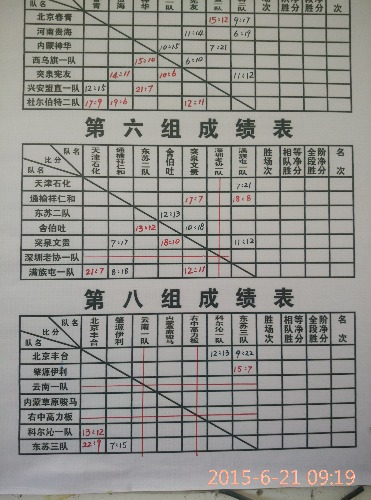 队名
北京春青 15:12 9:17
河南贵海 6:19
内蒙神华 10:15 7:21
西乌旗一队 15:10 6:10
突泉宪友 14:11 10:6 11:12
兴安盟直一队 12:15 21:7
杜尔伯特二队 17:9 19:6 12:11
第六组成绩表
队名 比分 队名 天津石化 通榆祥仁和 东苏二队 舍伯吐 突泉文贵 深圳老协一队 满族屯一队 胜场次 相等队净胜分 全阶段净胜分 名次
天津石化 7:21
通榆祥仁和 17:7 18:8
东苏二队 12:13
舍伯吐 13:12 10:18
突泉文贵 7:17 18:10 11:12
深圳老协一队
满族屯一队 21:7 8:18 12:11
第八组成绩表
队名 比分 队名 北京丰台 肇源伊利 云南一队 内蒙草原骏马 右中高力板 科尔沁一队 东苏三队 胜场次 相等队净胜分 全阶段净胜分 名次
北京丰台 12:13 9:22
肇源伊利 15:7
云南一队
内蒙草原骏马
右中高力板
科尔沁一队 13:12
东苏三队 22:9 7:15
2015-6-21 09:19